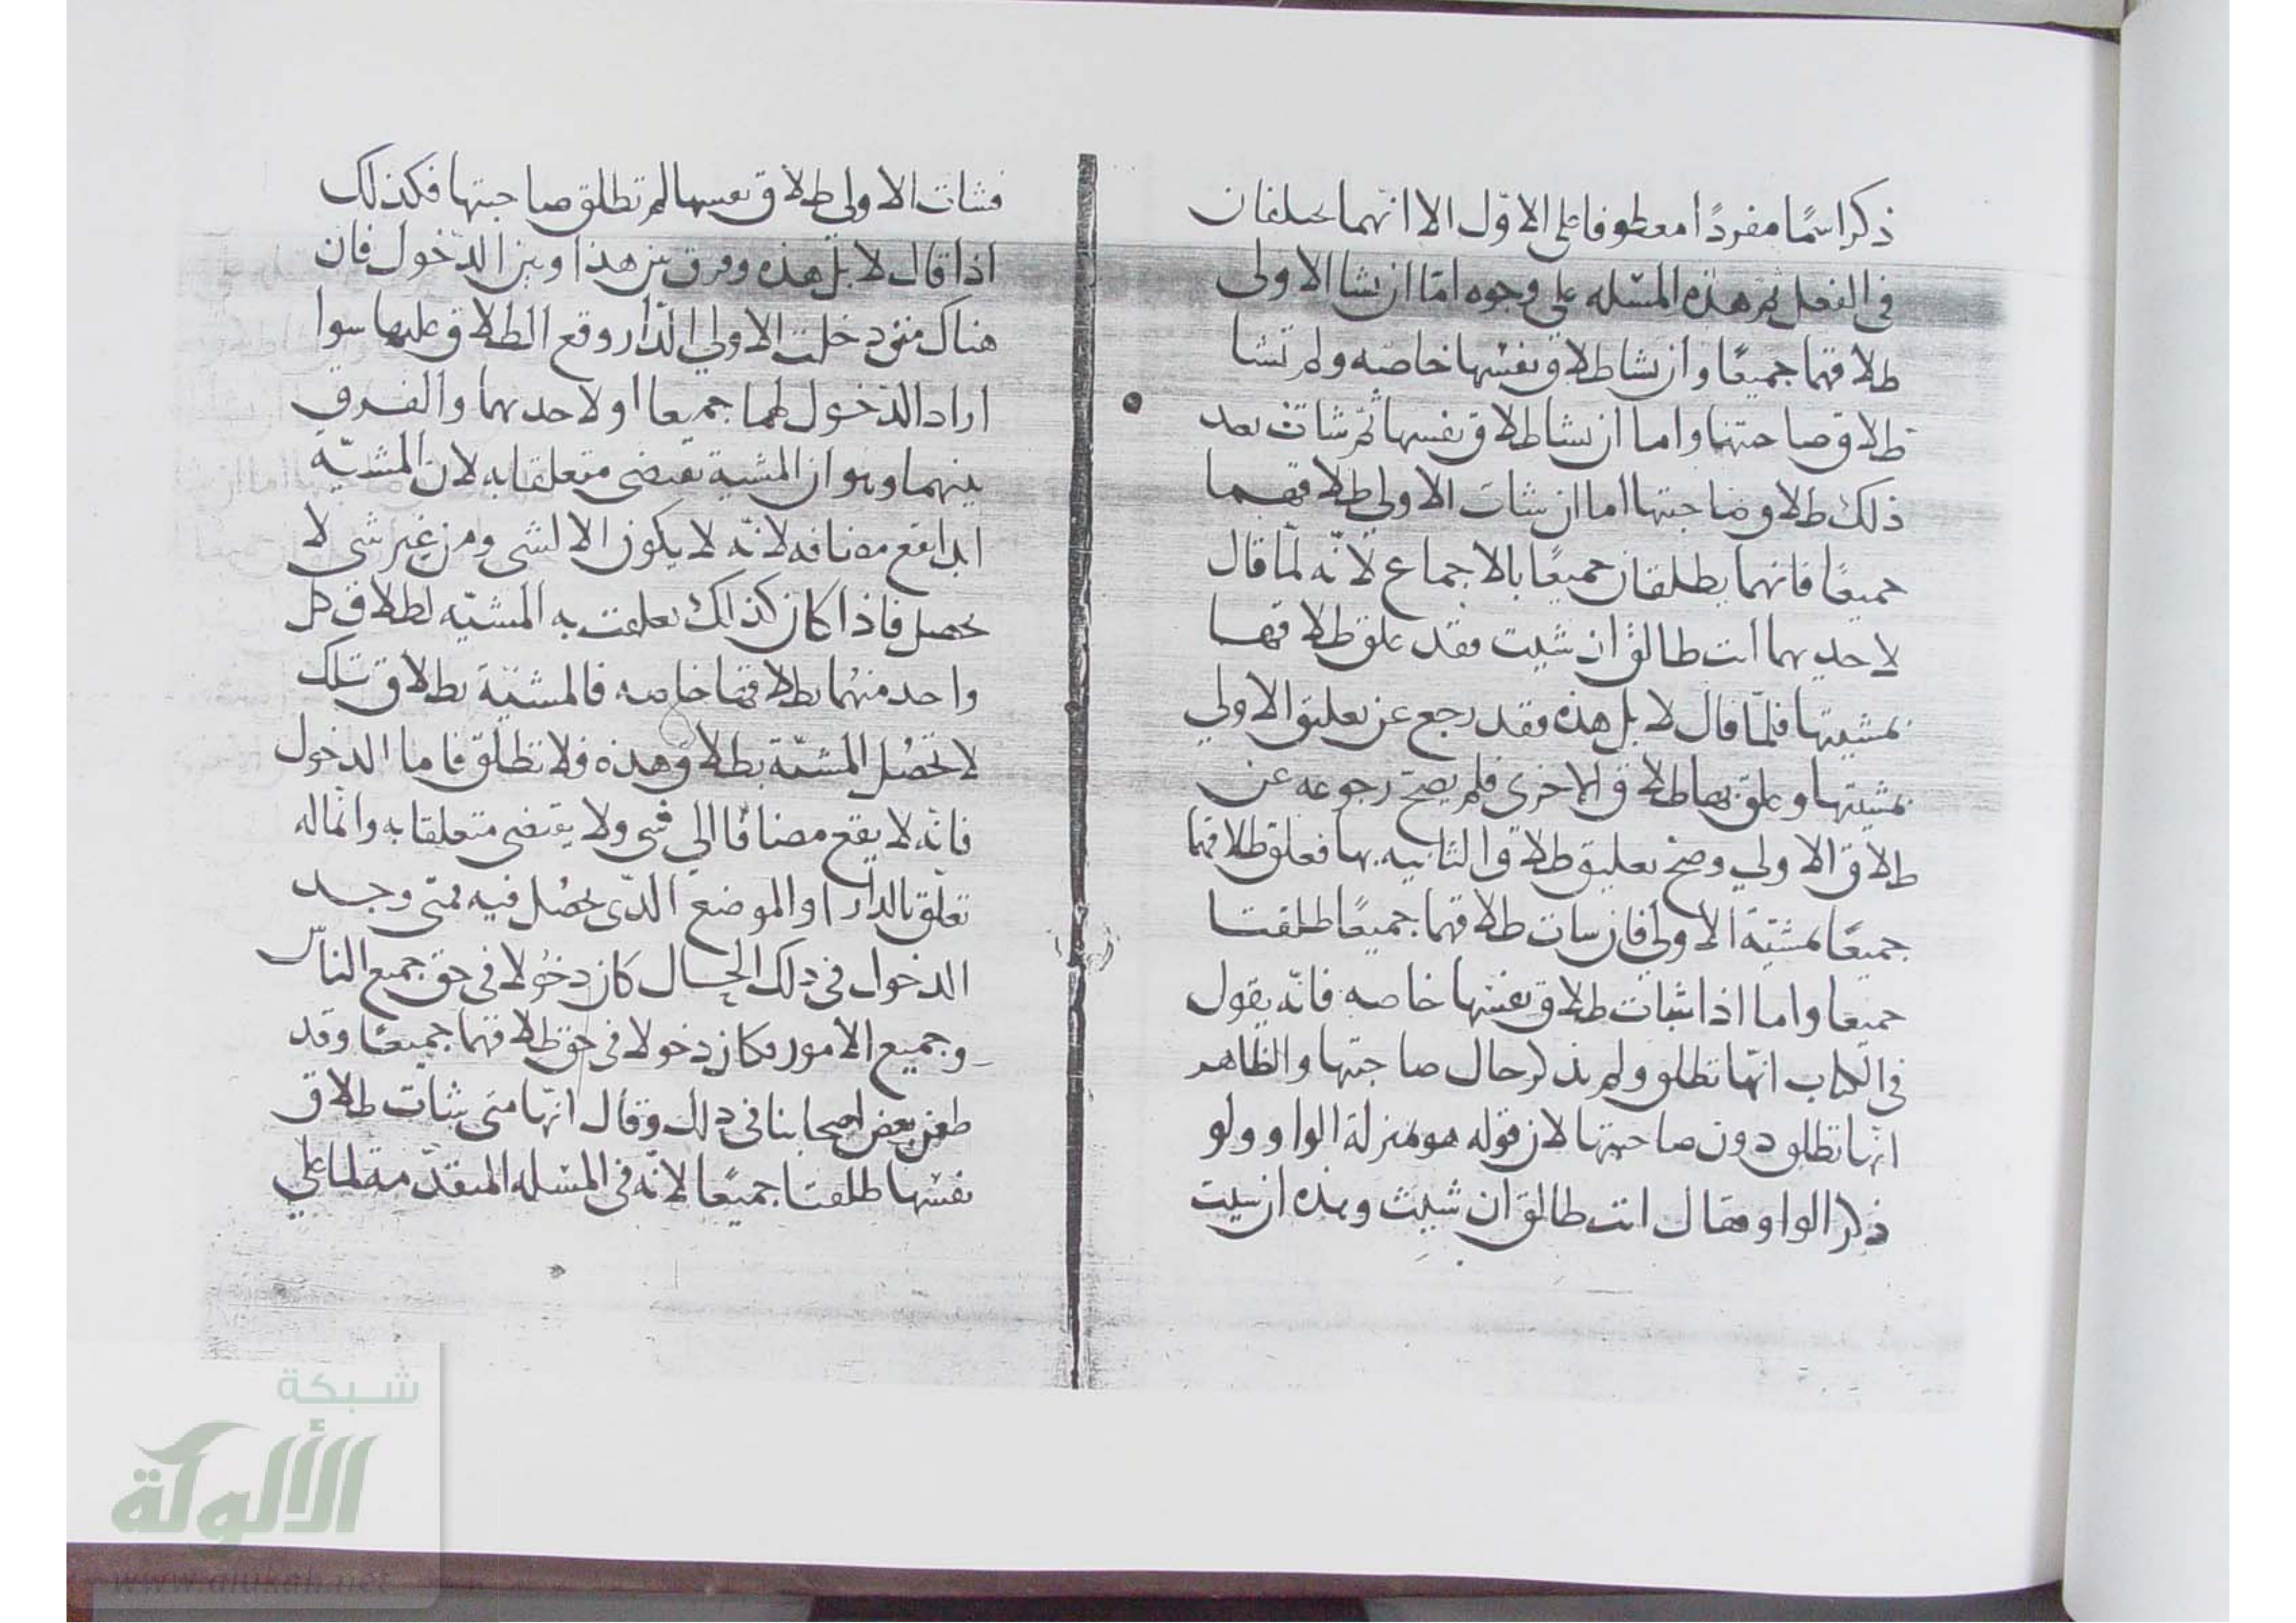 ذكر اسمًا مفردًا معطوفا على الاوّل الا انّهما يختلفان
في الفعل ثم هذه المسٔله على وجوه امّا ان تشا الاولى
طلاقهما جميعًا وان تشا طلاق نفسها خاصه ولم تشا
طلاق صاحبتها واما ان تشا طلاق نفسها ثم شات بعد
ذلك طلاق صاحبتها اما ان شات الاولي طلاقهما
جميعًا فانهما يطلقان جميعًا بالاجماع لانّه لمّا قال
لاحديهما انت طالق ان شيت فقد علق طلاقها
بمشيتها فلمّا قال لا بل هذه فقد رجع عن تعليق الاولي
بمشيتها وعلق بها طلاق الاخرى فلم يصح رجوعه عن
طلاق الاولي وصح تعليق طلاق الثانيه بها فعلق طلاقهما
جميعًا بمشيّة الاولي فان شات طلاقهما جميعًا طلقتا
جميعا واما اذا شات طلاق نفسها خاصه فانّه يقول
في الكتاب انّها تطلق ولم يذكر حال صاحبتها والظاهر
انّها تطلق دون صاحبتها لان قوله هو بمنزلة الواو ولو
ذكر الواو فقال انت طالق ان شيت وهذه ان شيت
فشات الاولى طلاق نفسها لم تطلق صاحبتها فكذلك
اذا قال لا بل هذه وفرق بين هذا وبين الدّخول فان
هناك متى دخلت الاولي الدّار وقع الطلاق عليها سوا
اراد الدّخول لهما جميعا او لاحديهما والفرق
بينهما وهو ان المشية تقتضى متعلقا به لان المشيّة
ابدا تقع مضافه لانّه لا يكون الا لشى ومن غير شى لا
يحصل فاذا كان كذلك تعلقت به المشيّه لطلاق كل
واحد منهُما بطلاقها خاصه فالمشيّة بطلاق تلك
لا تحصُل المشيّة بطلاق هذه فلا تطلق فاما الدخول
فانّه لا يقع مضافًا الي شى ولا يقتضى متعلقا به وانّما له
تعلّق بالدار او الموضع الذّى يحصُل فيه فمتى وجد
الدخول في ذلك الحال كان دخُولا في حق جميع الناس
وجميع الامور فكان دخولا في حق طلاقهما جميعًا وقد
طعن بعض اصحابنا في ذلك وقال انّها متى شات طلاق
نفسها طلقتا جميعًا لانّه في المسٔله المتقدّمة لما على
شبكة
الألوكة
www.alukah.net